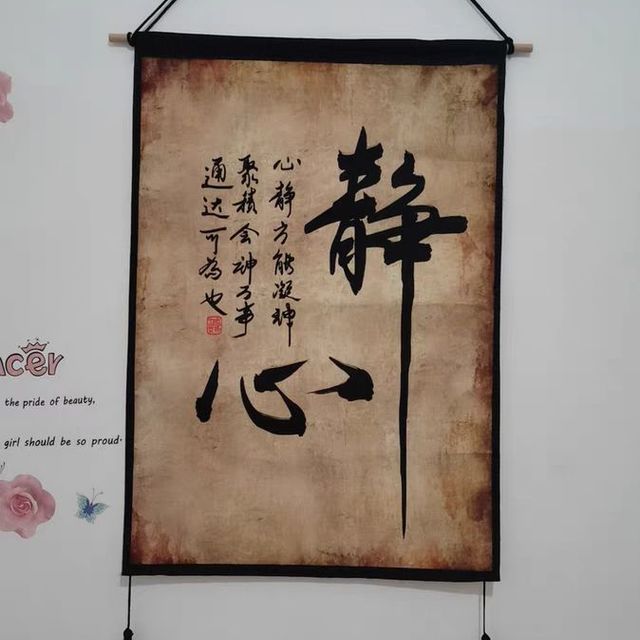 静心
心静方能凝神
聚積会神万事
通达可为也
ncer
the pride of beauty,
girl should be so proud.